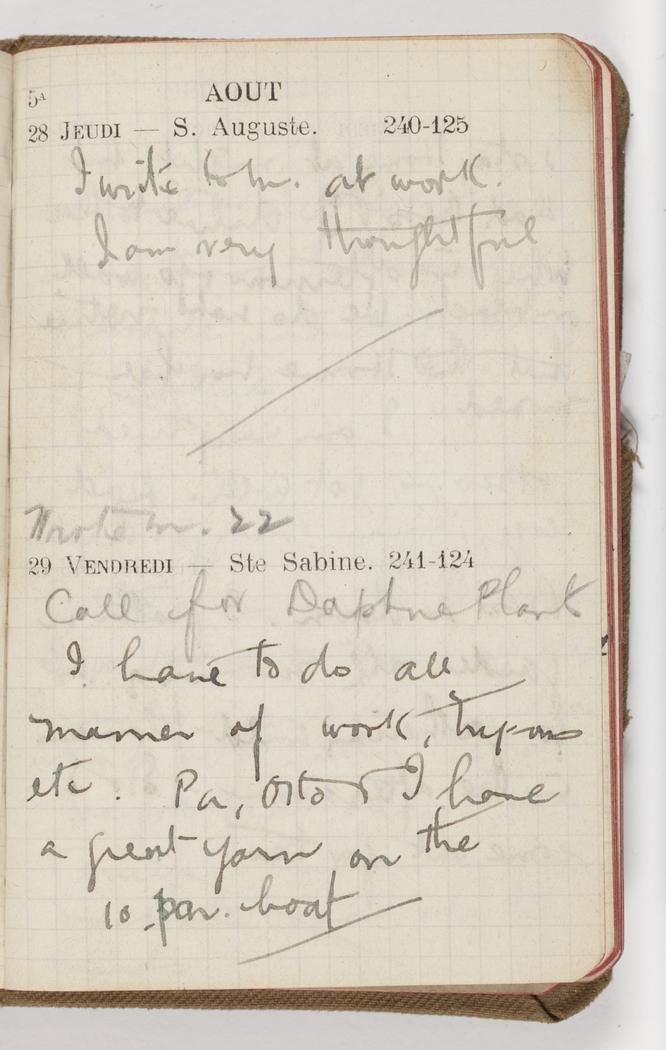 5ᴬ AOUT
28 JEUDI — S. Auguste. 240-125
I write to m. at work.
I am very thoughtful
Wrote m. 22
29 VENDREDI — Ste Sabine. 241-124
Call for Daphne Plant
I have to do all
manner of work,
etc. Pa, Otto & I have
a great yarn on the
10 par. boat